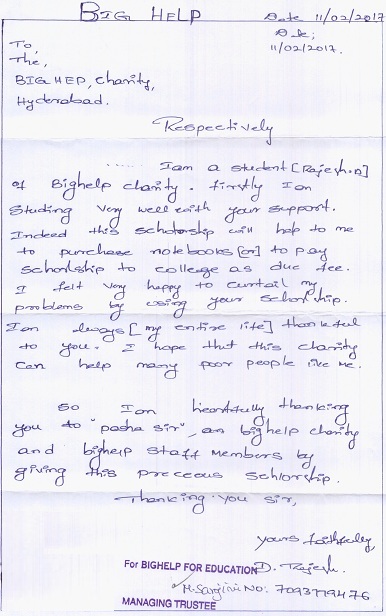 BIG HELP Date 11/02/2017
Date:
11/02/2017.
To,
The,
BIG HEP, Charity,
Hyderabad.
Respectively
...... I am a student [Rajesh.D]
of Bighelp charity. firstly I am
studing very well with your support.
Indeed this scholorship will help to me
to purchase notebooks [or] to pay
schorlship to college as due fee.
I felt very happy to curtail my
problems by using your schorlship.
I am always [my entire life] thankful
to you. I hope that this charity
can help many poor people like me.
So I am heartfully thanking
you to "pasha sir", an bighelp charity
and bighelp staff Members by
giving this preceous schlorship.
Thanking you sir,
yours faithfully,
For BIGHELP FOR EDUCATION D. Rajesh.
NO: 7093779476
MANAGING TRUSTEE